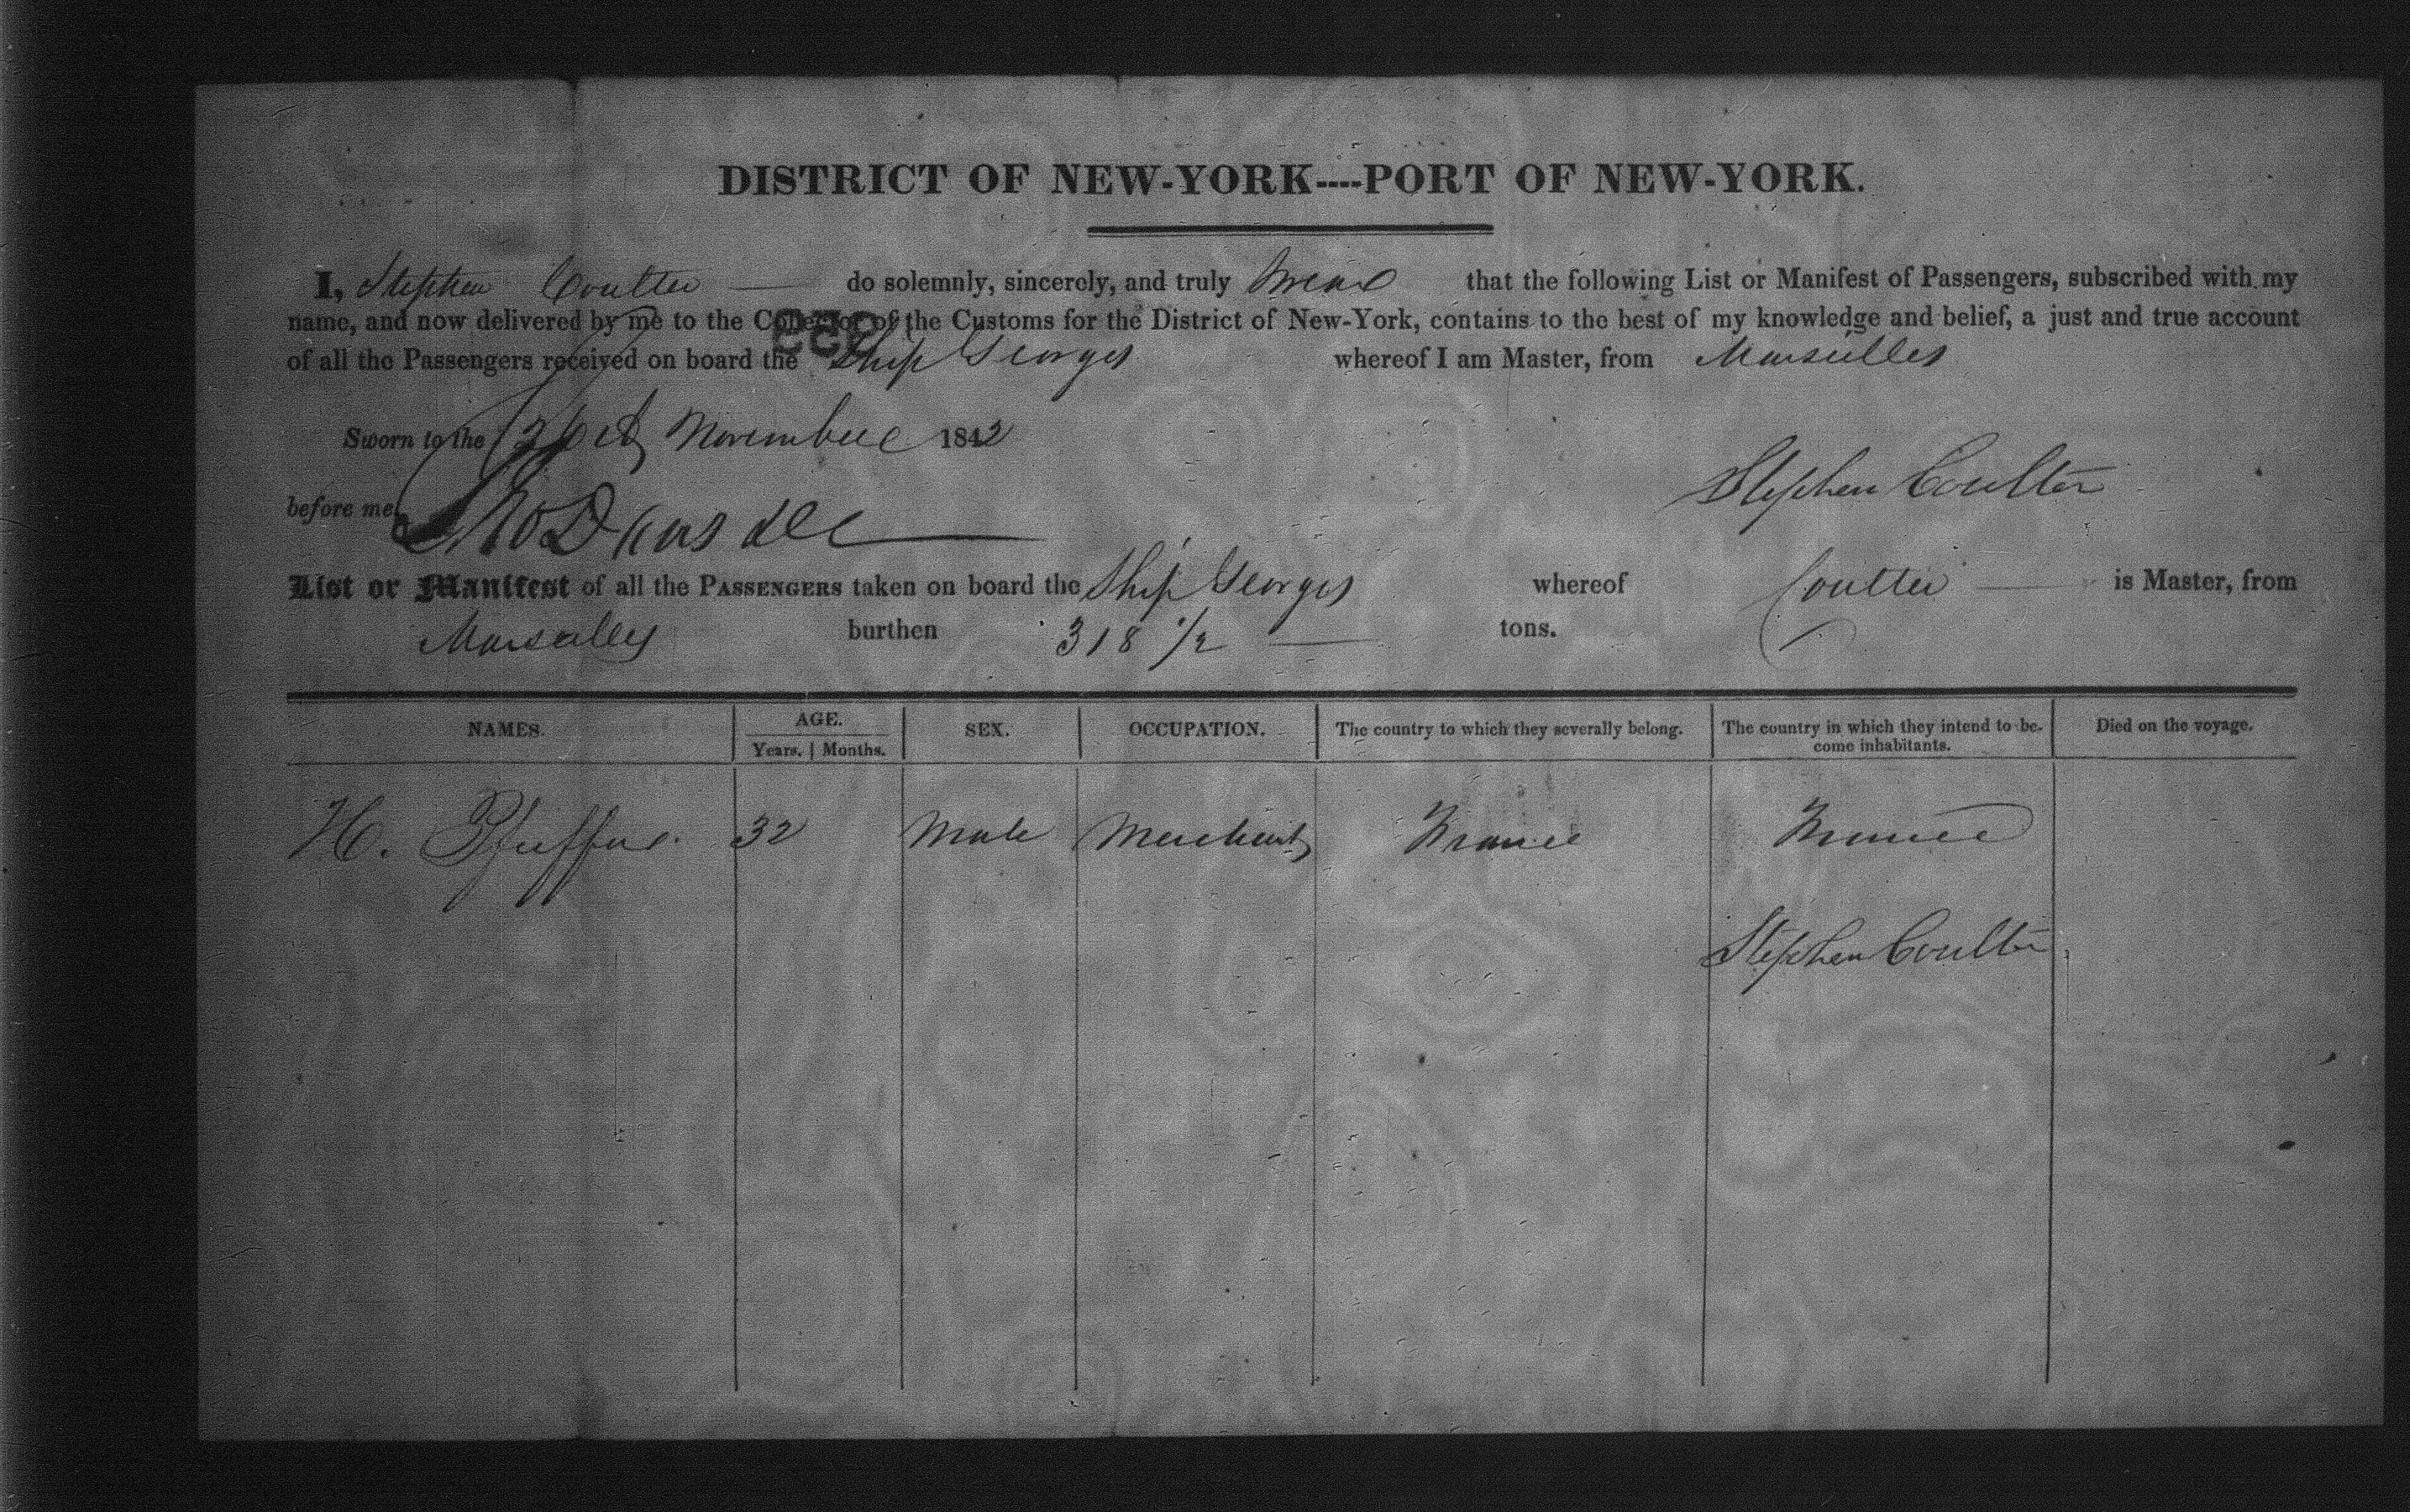 DISTRICT OF NEW-YORK----PORT OF NEW-YORK.
I, Stephen Coulter do solemnly, sincerely, and truly Swear that the following List or Manifest of Passengers, subscribed with my
name, and now delivered by me to the Collector of the Customs for the District of New-York, contains to the best of my knowledge and belief, a just and true account
of all the Passengers received on board the Ship Georges whereof I am Master, from Marseilles
Sworn to the 26th November 1842
Stephen Coulter
before me,
List or Manifest of all the PASSENGERS taken on board the Ship Georges whereof Coulter is Master, from
Marseilles burthen 318 1/2 tons.
NAMES. AGE. SEX. OCCUPATION. The country to which they severally belong. The country in which they intend to be- Died on the voyage.
Years. Months. come inhabitants.
H. 32 Male Merchant France France
Stephen Coulter